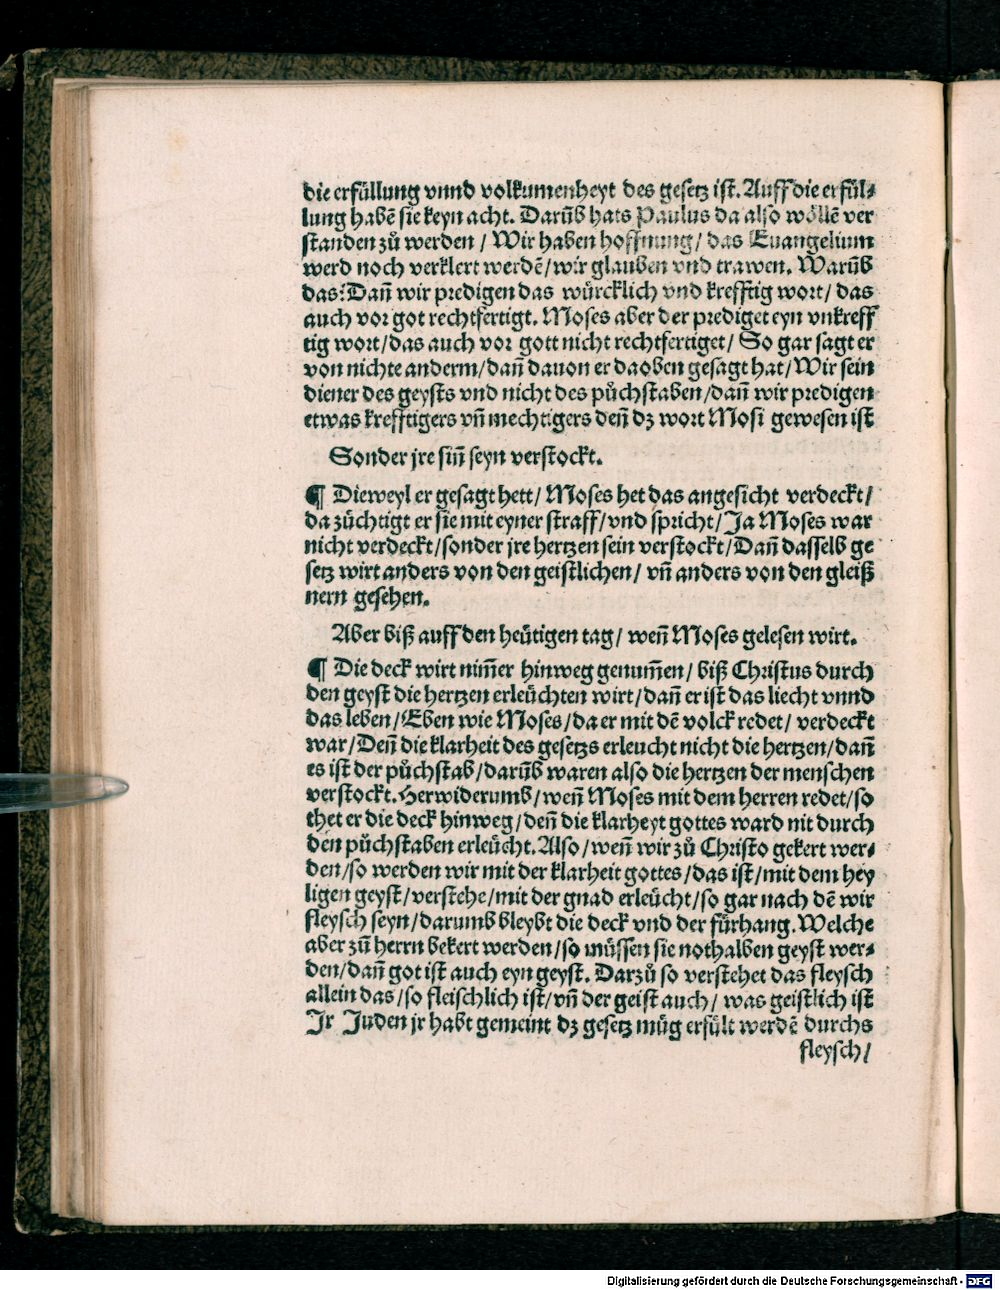 die erfüllung vnnd volkumenheyt des gesetz ist. Auff die erfül⸗
lung habẽ sie keyn acht. Darũb hats Paulus da also wöllẽ ver
standen zů werden / Wir haben hoffnung / das Euangelium
werd noch verklert werdẽ / wir glauben vnd trawen. Warũb
das? Dañ wir predigen das würcklich vnd krefftig wort / das
auch vor got rechtfertigt. Moses aber der prediget eyn vnkreff
tig wort / das auch vor gott nicht rechtfertiget / So gar sagt er
von nichte anderm / dañ dauon er daoben gesagt hat / Wir sein
diener des geysts vnd nicht des půchstaben / dañ wir predigen
etwas krefftigers vñ mechtigers deñ dz wort Mosi gewesen ist
Sonder jre siñ seyn verstockt.
¶ Dieweyl er gesagt hett / Moses het das angesicht verdeckt /
da züchtigt er sie mit eyner straff / vnd spricht / Ja Moses war
nicht verdeckt / sonder jre hertzen sein verstockt / Dañ dasselb ge
setz wirt anders von den geistlichen / vñ anders von den gleiß
nern gesehen.
Aber biß auff den heütigen tag / weñ Moses gelesen wirt.
¶ Die deck wirt nim̃er hinweg genum̃en / biß Christus durch
den geyst die hertzen erleüchten wirt / dañ er ist das liecht vnnd
das leben / Eben wie Moses / da er mit dẽ volck redet / verdeckt
war / Deñ die klarheit des gesetzs erleucht nicht die hertzen / dañ
es ist der půchstab / darũb waren also die hertzen der menschen
verstockt. Herwiderumb / weñ Moses mit dem herren redet / so
thet er die deck hinweg / deñ die klarheyt gottes ward nit durch
den půchstaben erleücht. Also / weñ wir zů Christo gekert wer⸗
den / so werden wir mit der klarheit gottes / das ist / mit dem hey
ligen geyst / verstehe / mit der gnad erleücht / so gar nach dẽ wir
fleysch seyn / darumb bleybt die deck vnd der fürhang. Welche
aber zũ herrn bekert werden / so müssen sie nothalben geyst wer⸗
den / dañ got ist auch eyn geyst. Darzů so verstehet das fleysch
allein das / so fleischlich ist / vñ der geist auch / was geistlich ist
Jr Juden jr habt gemeint dz gesetz müg erfült werdẽ durchs
fleysch /
Digitalisierung gefördert durch die Deutsche Forschungsgemeinschaft - DFG